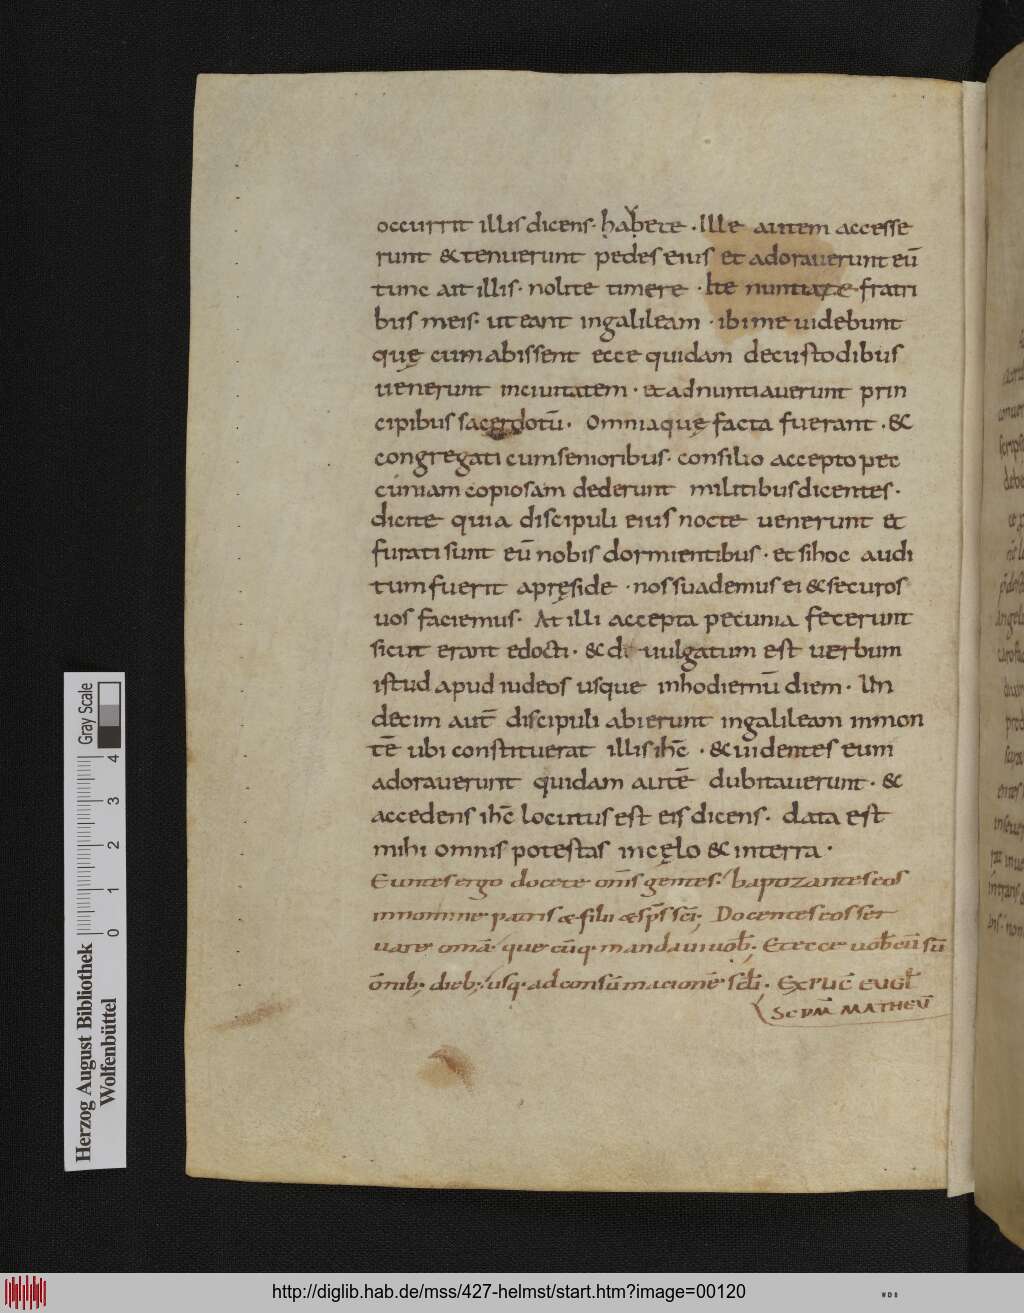 occurrit illis dicens · habete · Ille autem accesse
runt & tenuerunt pedes eius et adorauerunt eū
tunc ait illis · nolite timere · Ite nuntiate fratri
bus meis · ut eant in galileam · ibi me uidebunt
quę cum abissent ecce quidam de custodibus
uenerunt in ciuitatem · et adnuntiauerunt prin
cipibus sacerdotū · Omnia quę facta fuerant · &
congregati cum senioribus · consilio accepto pec
cuniam copiosam dederunt militibus dicentes ·
dicite quia discipuli eius nocte uenerunt et
furati sunt eū nobis dormientibus · et si hoc audi
tum fuerit a pręside · nos suademus ei & securos
uos faciemus · At illi accepta pecunia fecerunt
sicut erant edocti · & di uulgatum est uerbum
istud apud iudeos usque in hodiernū diem · Un
decim aut̄ discipuli abierunt in galileam in mon
tē ubi constituerat illis ihc̄ · & uidentes eum
adorauerunt quidam autē dubitauerunt · &
accedens ihc̄ locutus est eis dicens · data est
mihi omnis potestas in cęlo & in terra ·
Euntes ergo docete om̄s gentes · baptizantes eos
in nomine patris & filii & sp̄s sc̄i; Docentes eos ser
uare omā · que cūq· mandaui uob̄; Et ecce uob̄cū sū
ōmib; dieb; usq· ad consūmacionē sc̄li · Explic̄ eugl̄
Scdm̄ Matheū
Herzog August Bibliothek
Wolfenbüttel
0 1 2 3 4
Gray Scale
http://diglib.hab.de/mss/427-helmst/start.htm?image=00120